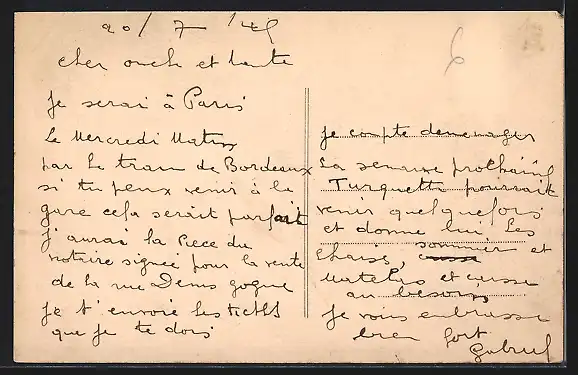 20/ 7 '45
cher oncle et tante
Je serai à Paris
Le Mercredi Matin
par Le train de Bordeaux
si tu peux venir à la
gare cela serait parfait
J'aurai la Piece du
notaire signée pour la vente
de la rue Denis
je t'envoie les
que je te dois
je compte demenager
La semaine prochaine
Turquette pourrait
venir quelquefois
et donne lui Les
chaises, sommier et
Matelas et
au besoin
Je vous embrasse
bien fort
Gabriel
6